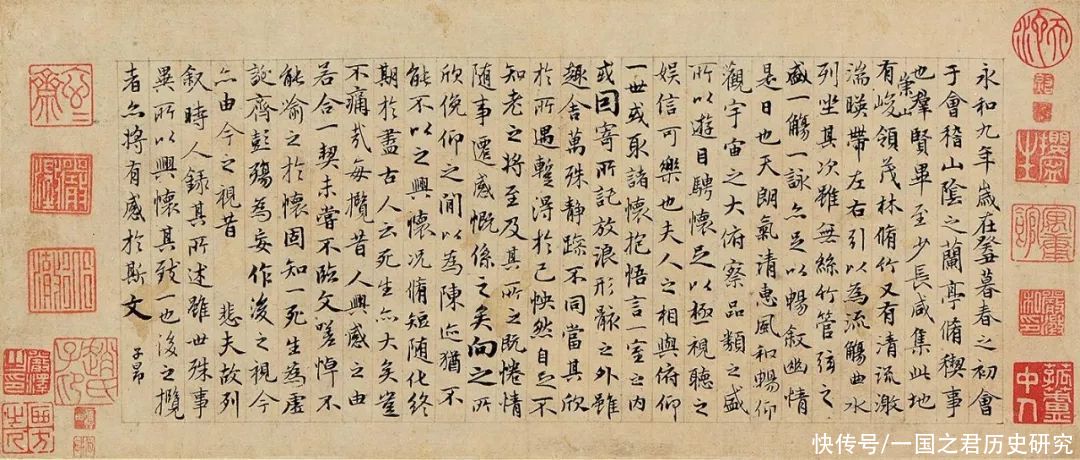 永和九年歲在癸暮春之初會
于會稽山陰之蘭亭脩稧事
也羣賢畢至少長咸集此地
有崇山峻領茂林脩竹又有清流激
湍暎帶左右引以為流觴曲水
列坐其次雖無絲竹管弦之
盛一觴一詠亦足以暢敘幽情
是日也天朗氣清惠風和暢仰
觀宇宙之大俯察品類之盛
所以遊目騁懷足以極視聽之
娛信可樂也夫人之相與俯仰
一世或取諸懷抱悟言一室之内
或因寄所託放浪形骸之外雖
趣舍萬殊静躁不同當其欣
於所遇蹔得於己怏然自足不
知老之將至及其所之既惓情
随事遷感慨係之矣向之所
欣俛仰之閒以為陳迹猶不
能不以之興懷况脩短随化終
期於盡古人云死生亦大矣豈
不痛哉每攬昔人興感之由
若合一契未嘗不臨文嗟悼不
能喻之於懷固知一死生為虛
誕齊彭殤為妄作後之視今
亦由今之視昔 悲夫故列
敘時人錄其所述雖世殊事
異所以興懷其致一也後之攬
者亦將有感於斯文
子昂
快传号/一国之君历史研究